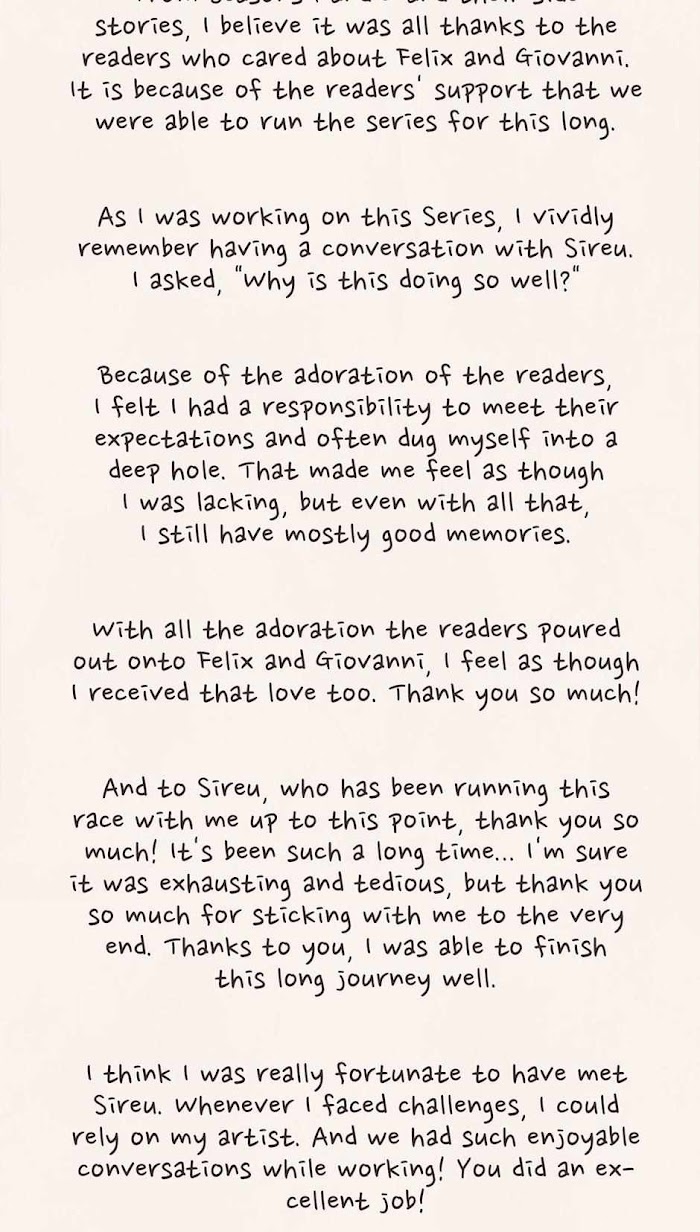 stories, I believe it was all thanks to the
readers who cared about Felix and Giovanni.
It is because of the readers' support that we
were able to run the series for this long.
As I was working on this Series, I vividly
remember having a conversation with Sireu.
I asked, "Why is this doing so well?"
Because of the adoration of the readers,
I felt I had a responsibility to meet their
expectations and often dug myself into a
deep hole. That made me feel as though
I was lacking, but even with all that,
I still have mostly good memories.
With all the adoration the readers poured
out onto Felix and Giovanni, I feel as though
I received that love too. Thank you so much!
And to Sireu, who has been running this
race with me up to this point, thank you so
much! It's been such a long time... I'm sure
it was exhausting and tedious, but thank you
so much for sticking with me to the very
end. Thanks to you, I was able to finish
this long journey well.
I think I was really fortunate to have met
Sireu. Whenever I faced challenges, I could
rely on my artist. And we had such enjoyable
conversations while working! You did an ex-
cellent job!